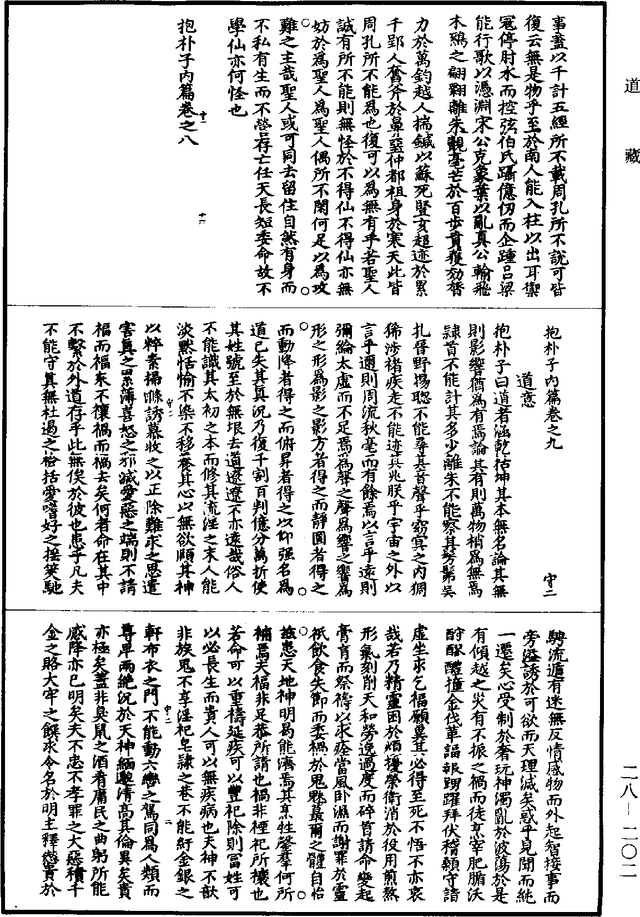 道藏
事蓋以千計五經所不載周孔所不說可皆
復云無是物乎至於南人能入柱以出耳禦
寇停肘水而控弦伯氏躡億仞而企踵呂梁
能行歌以憑淵宋公克象葉以亂真公輸飛
木鵄之翩翾離朱覿毫芒於百步賁獲效膂
力於萬鈞越人揣鍼以蘇死竪亥超迹於累
千郢人奮斧於鼻堊仲都袒身於寒天此皆
周孔所不能為也復可以為無有乎若聖人
誠有所不能則無怪於不得仙不得仙亦無
妨於為聖人為聖人偶所不閑何足以為攻
難之主哉聖人或可同去留任自然有身而
不私有生而不營存亡任天長短委命故不
學仙亦何怪也
抱朴子內篇卷之八
抱朴子內篇卷之九 守二
道意
抱朴子曰道者涵乾括坤其本無名論其無
則影響猶為有焉論其有則萬物尚為無焉
隸首不能計其多少離朱不能察其髣髴吳
札晉野竭聰不能尋其音聲乎窈冥之內猲
狶涉豬疾走不能迹其兆朕乎宇宙之外以
言乎邇則周流秋毫而有餘焉以言乎遠則
彌綸太虛而不足焉為聲之聲為響之響為
形之形為影之影方者得之而靜圓者得之
而動降者得之而俯昇者得之以仰强名為
道已失其真況乃復千割百判億分萬析使
其姓號至於無垠去道遼遼不亦遠哉俗人
不能識其太初之本而修其流淫之末人能
淡默恬愉不染不移養其心以無欲頤其神
以粹素掃滌誘慕收之以正除難求之思遣
害真之累薄喜怒之邪滅愛惡之端則不請
福而福來不禳禍而禍去矣何者命在其中
不繫於外道存乎此無俟於彼也患乎凡夫
不能守真無杜遏之檢括愛嗜好之搖奘馳
騁流遁有迷無反情感物而外起智接事而
旁溢誘於可欲而天理滅矣惑乎見聞而純
一遷矣心受制於奢玩神濁亂於波蕩於是
有傾越之災有不振之禍而徒烹宰肥腯沃
酹醪醴撞金伐革謳歌踴躍拜伏稽顙守請
虛坐求乞福願冀其必得至死不悟不亦哀
哉若乃精靈困於煩擾榮衛消於役用煎熬
形氣刻削天和勞逸過度而碎首請命變起
膏肓而祭禱以求痊當風卧濕而謝罪於靈
祇飲食失節而委禍於鬼魅蕞爾之體自怡
茲患天地神明曷能濟焉其烹牲罄羣何所
補焉夫福非足恭所請也禍非禋祀所禳也
若命可以重禱延疾可以豐祀除則富姓可
以必長生而貴人可以無疾病也夫神不歆
非族鬼不享淫祀皂隸之巷不能紆金銀之
軒布衣之門不能動六轡之駕同為人類而
尊卑兩絶況於天神緬邈清高其倫異矣貴
亦極矣蓋非臭鼠之酒肴庸民之曲躬所能
感降亦已明矣夫不忠不孝罪之大惡積千
金之賂大牢之饌求令名於明主釋愆責於
二八—二〇二